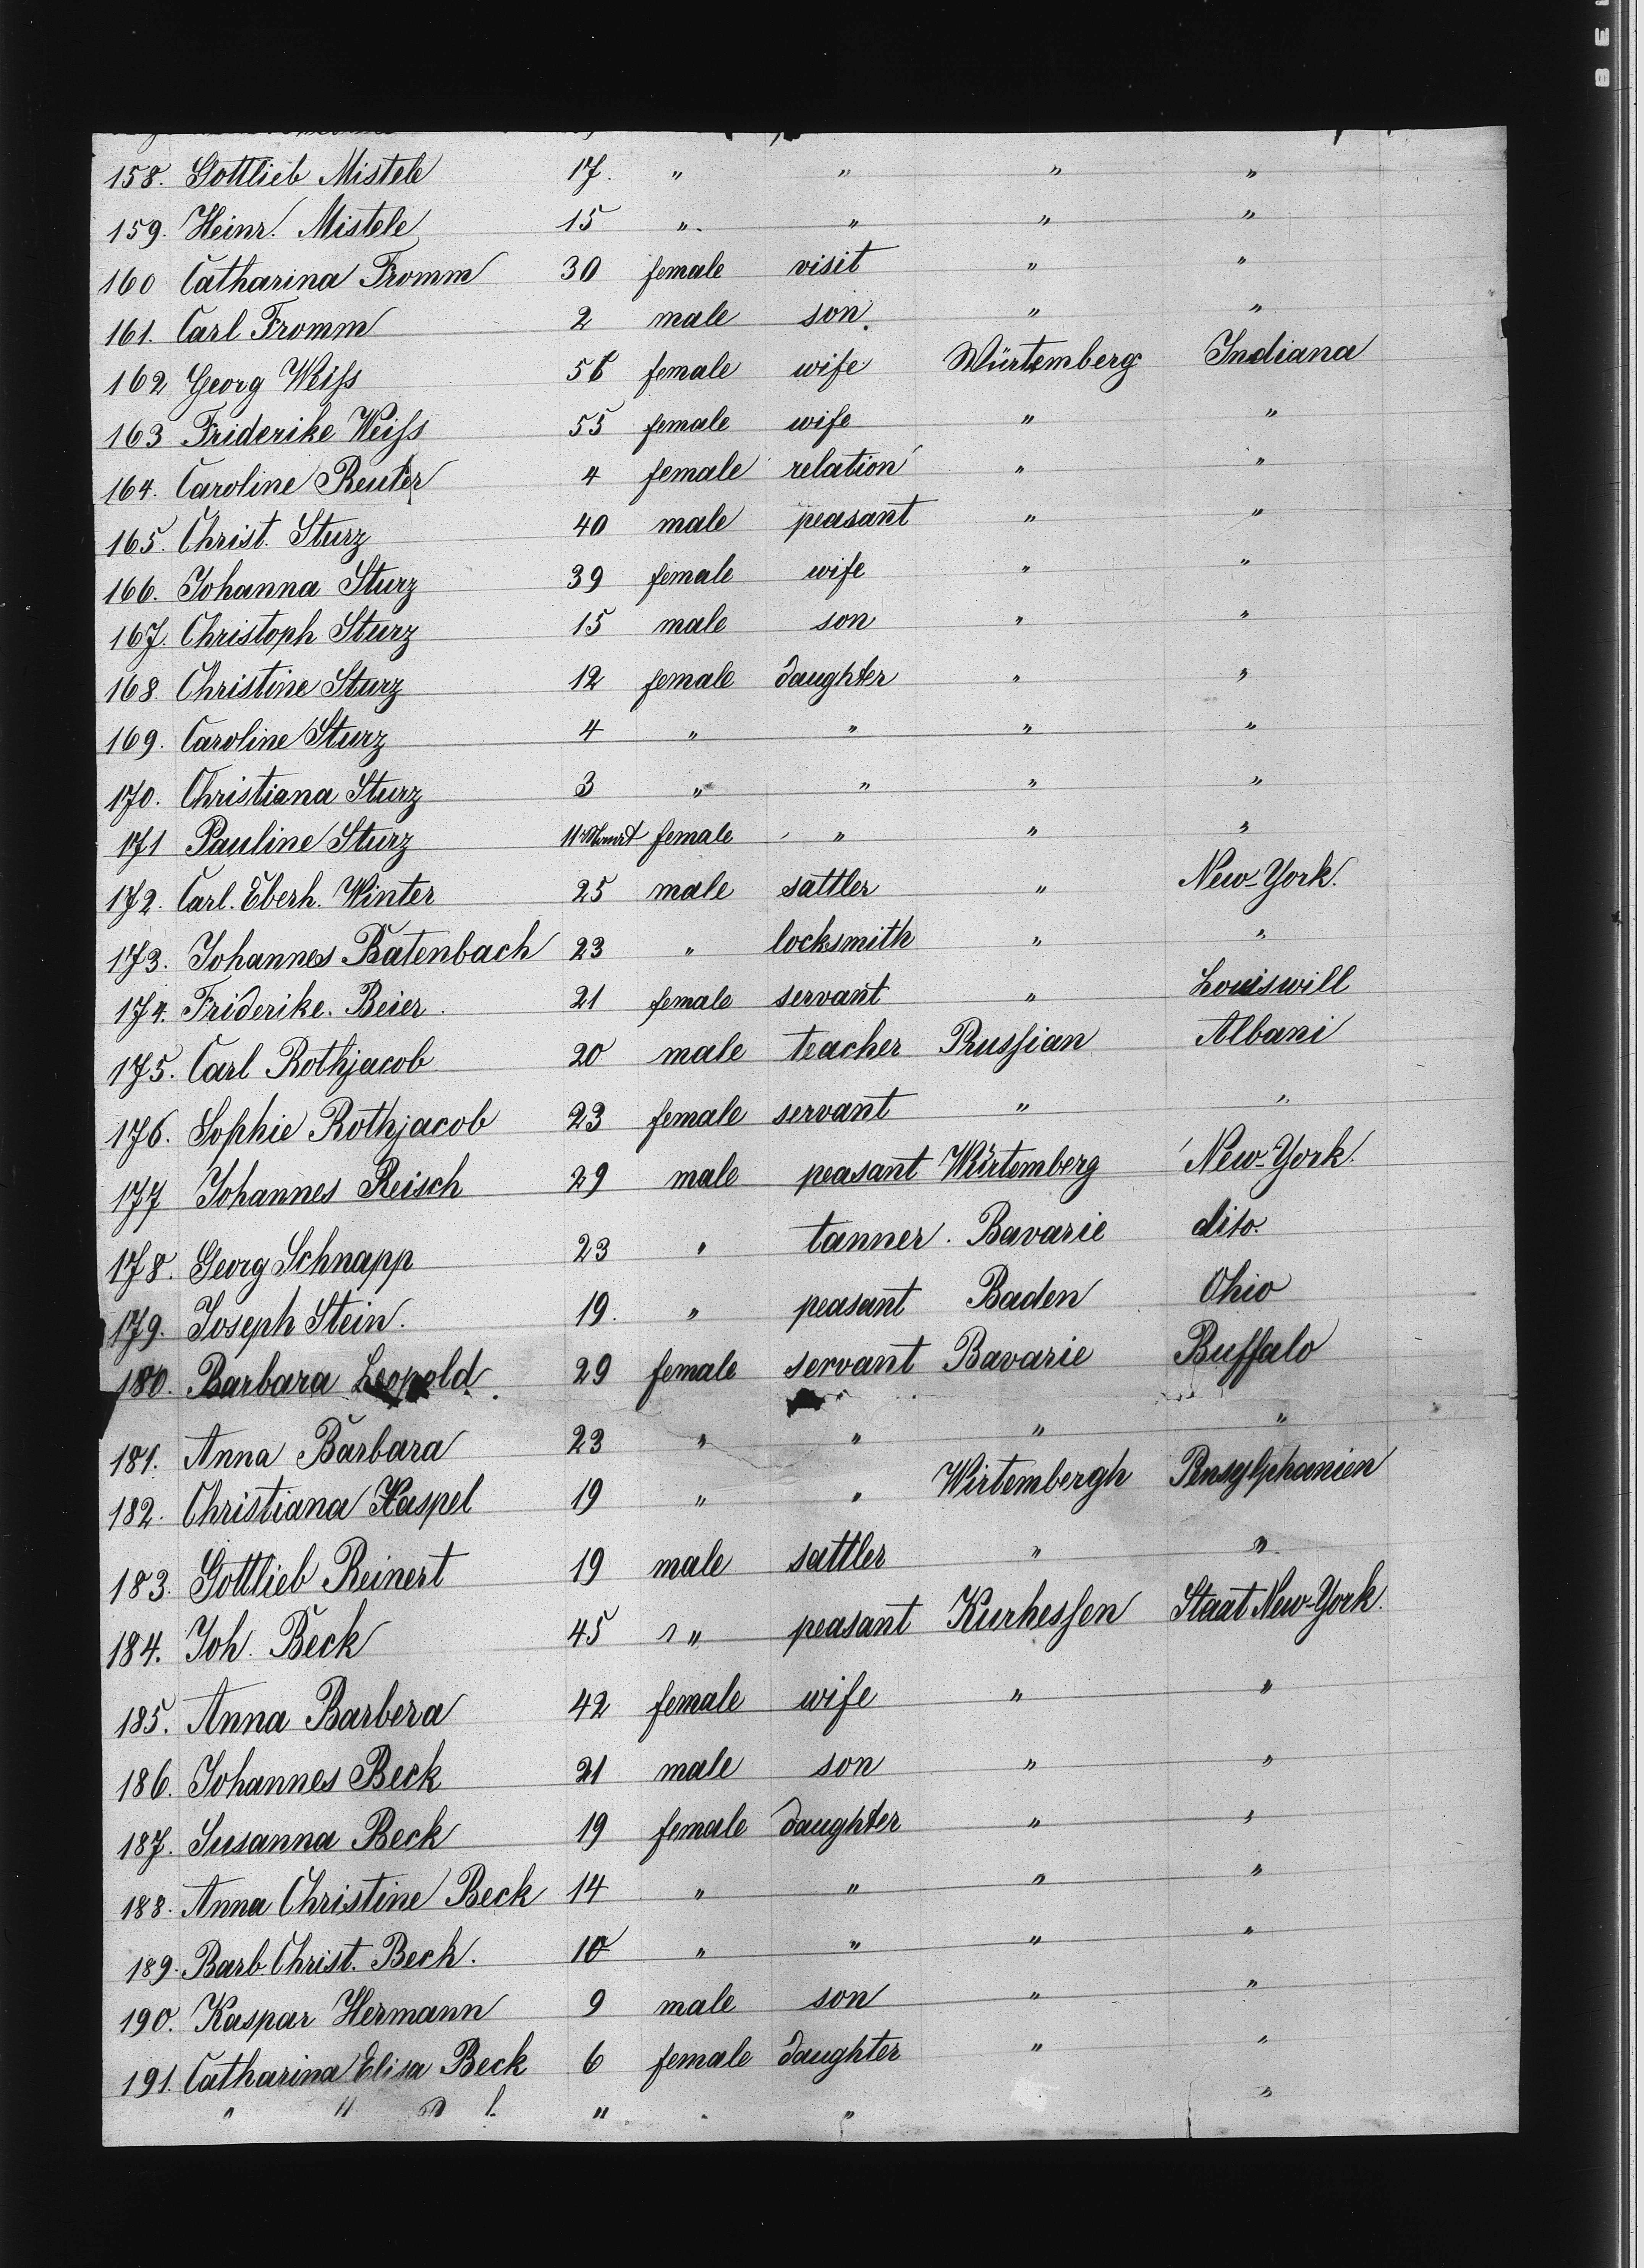 158. Gottlieb Mistele 17. " " " "
159. Heinr. Mistele 15 " " " "
160 Catharina Fromm 30 female visit " "
161. Carl Fromm 2 male son. " "
162 Georg Weiſs 56 female wife Würtemberg Indiana
163 Friderike Weiſs 55 female wife " "
164. Caroline Reuter 4 female relation " "
165. Christ. Sturz 40 male peasant " "
166. Johanna Sturz 39 female wife " "
167. Christoph Sturz 15 male son " "
168. Christine Sturz 12 female daughter " "
169. Caroline Sturz 4 " " " "
170. Christiana Sturz 3 " " " "
171 Pauline Sturz 11 female " " "
172. Carl. Eberh. Winter 25 male sattler " New-York.
173. Johannes Batenbach 23 " locksmith " "
174. Friderike. Beier. 21 female servant " Louiswill
175. Carl Rothjacob 20 male teacher Pruſsian Albani
176. Sophie Rothjacob 23 female servant " "
177 Johannes Reisch 29 male peasant Würtemberg New-York.
178. Georg Schnapp 23 " tanner. Bavarie dito.
179. Joseph Stein. 19. " peasant Baden Ohio
180. Barbara Leopold. 29 female servant Bavarie Buffalo
181. Anna Barbara 23 " " " "
182. Christiana Haspel 19 " " Wirtembergh Pensylphanien
183. Gottlieb Reinert 19 male sattler " "
184. Joh. Beck 45 " peasant Kurheſsen Staat New-York.
185. Anna Barbera 42 female wife " "
186. Johannes Beck 21 male son " "
187. Susanna Beck 19 female daughter " "
188. Anna Christine Beck 14 " " " "
189. Barb. Christ. Beck. 10 " " " "
190. Kaspar Hermann 9 male son " "
191. Catharina Elisa Beck 6 female daughter " "